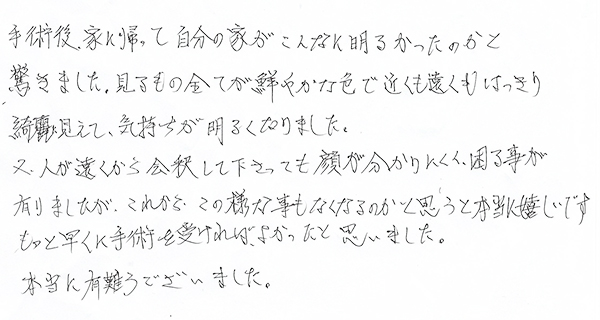 手術後、家に帰って自分の家がこんなに明るかったのかと
驚きました。見るもの全てが鮮やかな色で近くも遠くもはっきり
綺麗に見えて、気持ちが明るくなりました。
又、人が遠くから会釈して下さっても顔が分かりにくく、困る事が
有りましたが、これから、この様な事もなくなるのかと思うと本当に嬉しいです
もっと早くに手術を受ければ、よかったと思いました。
本当に有難うございました。